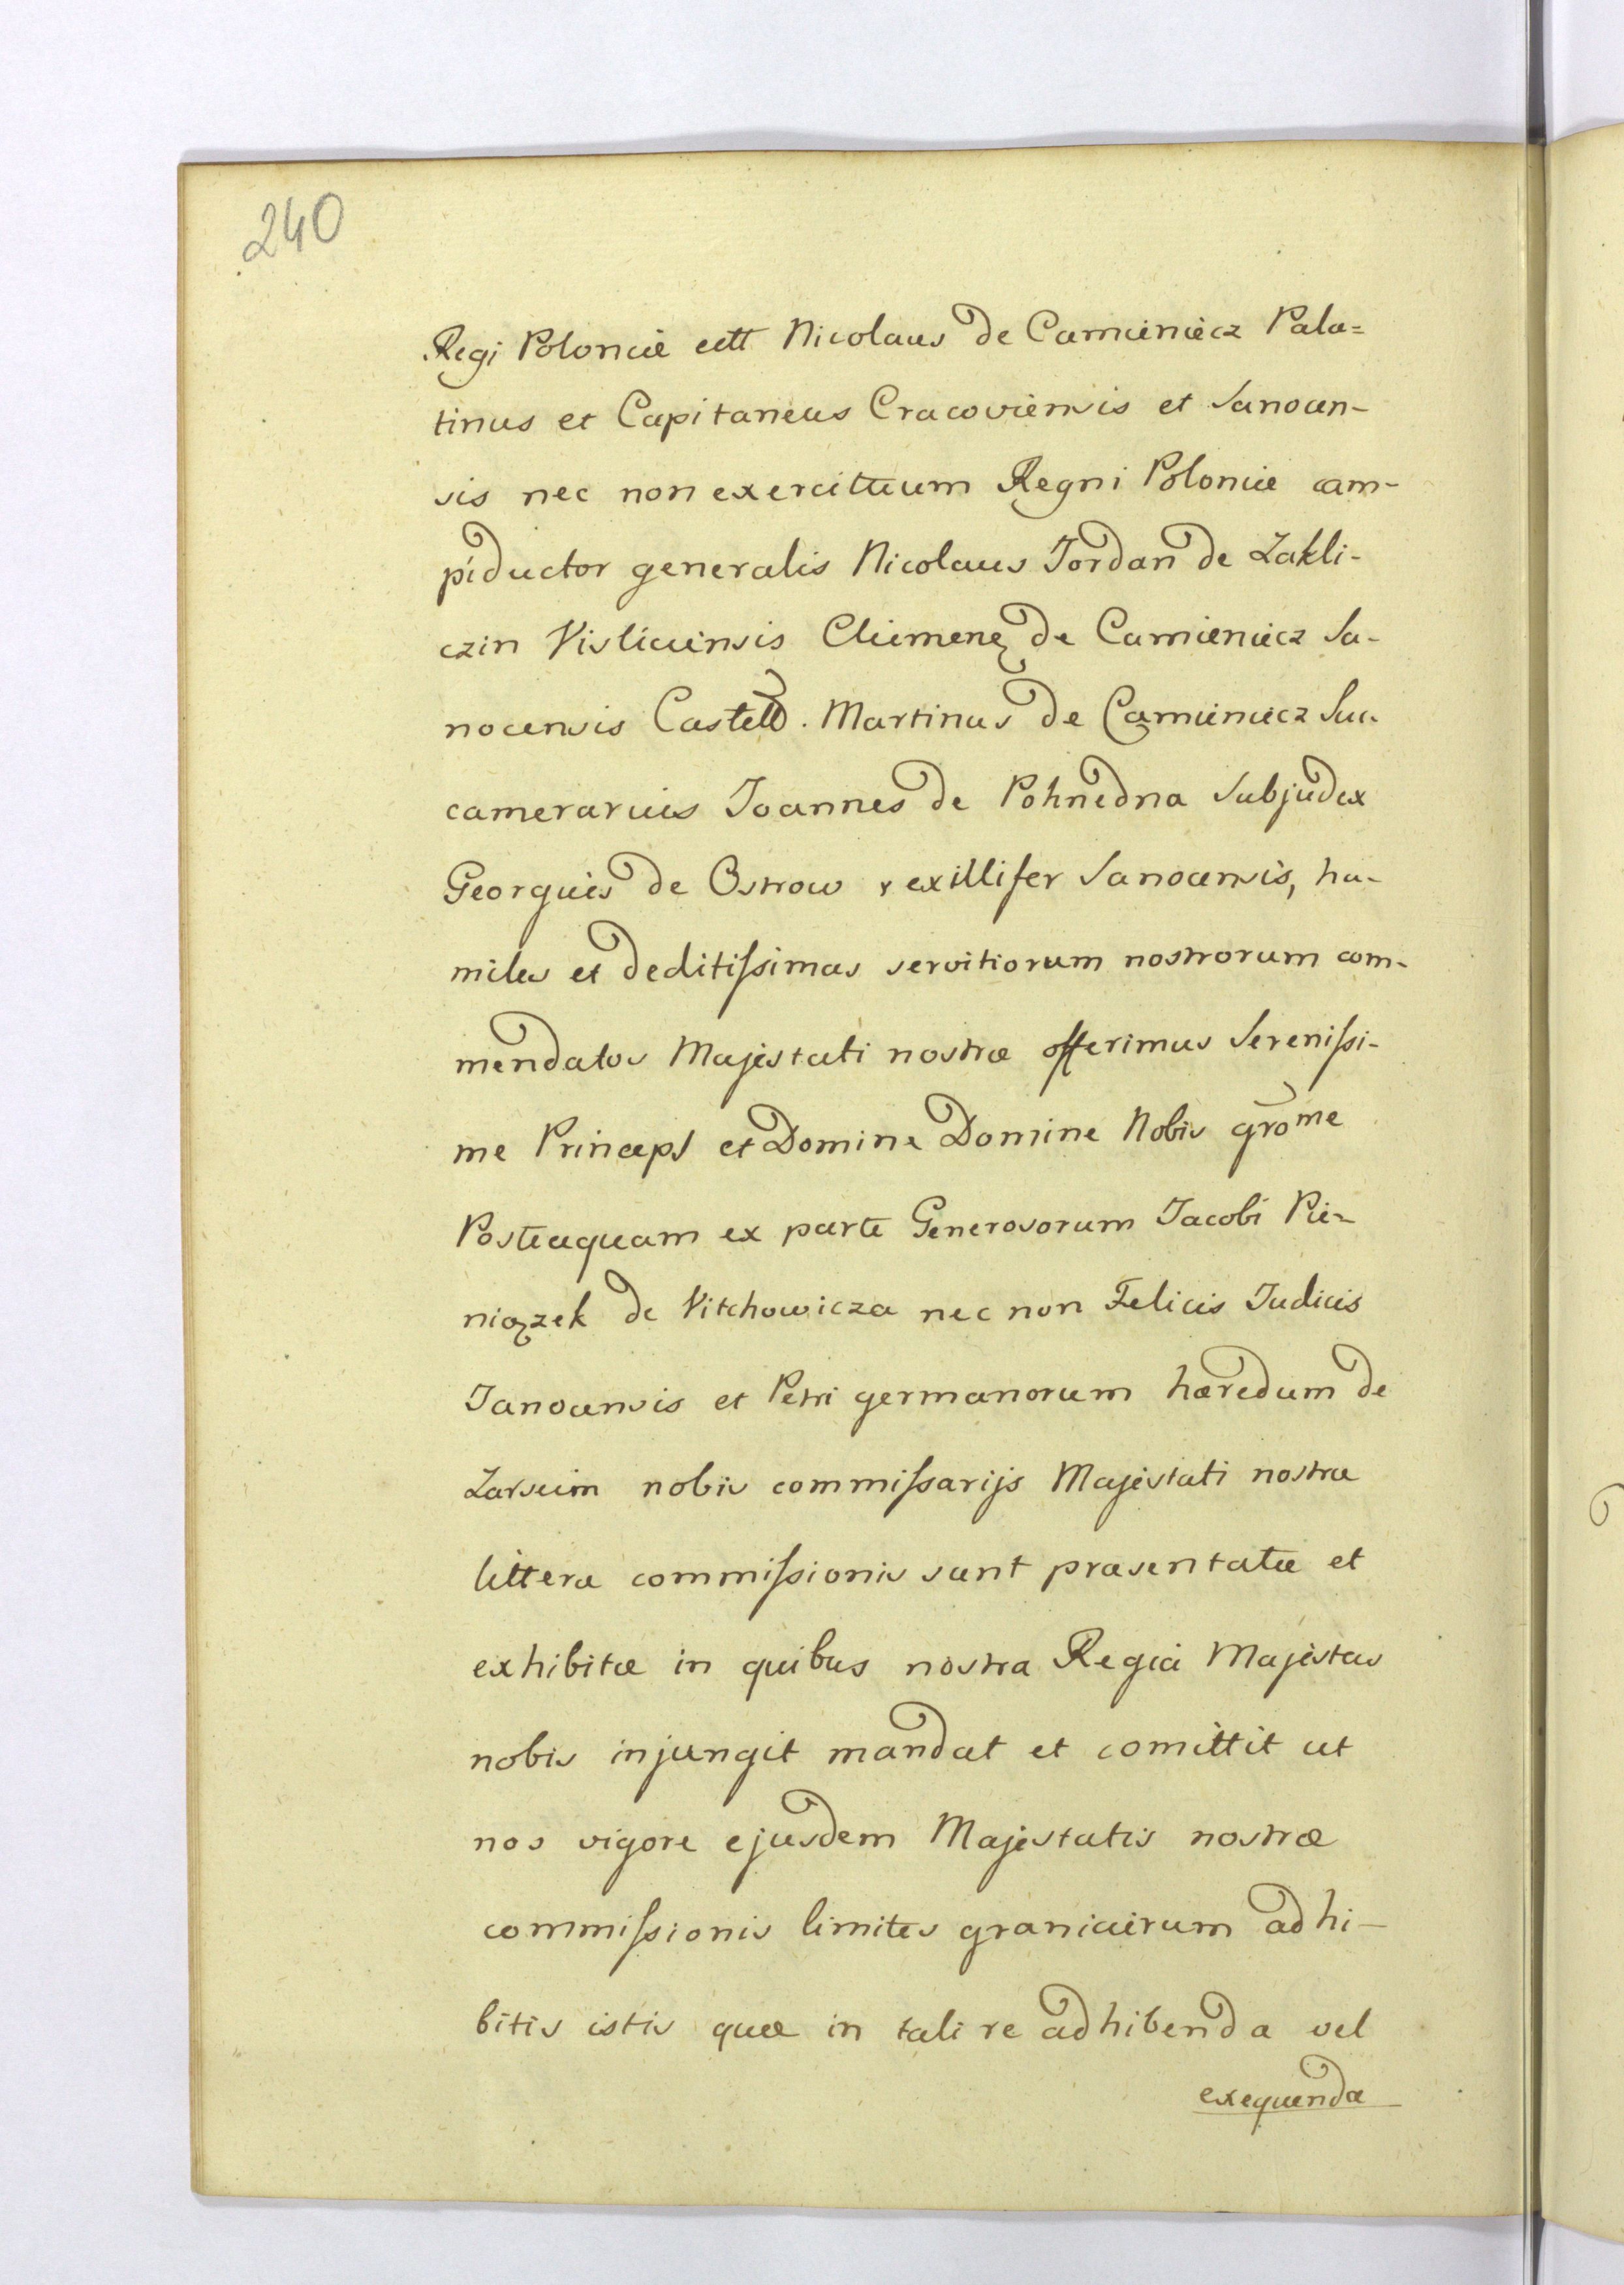 240
Regi Poloniæ ectt Nicolaus de Camieniecz Pala=
tinus et Capitaneus Cracoviensis et Sanocen-
sis nec non exercituum Regni Poloniæ cam-
piductor generalis Nicolaus Jordan de Zakli-
czin Visliciensis Clemens de Camieniecz Sa-
nocensis Castell. Martinus de Camieniecz Suc-
camerarius Joannes de Pohnedna Subjudex
Georgius de Ostrow vexillifer Sanocensis, hu-
miles et deditissimas servitiorum nostrorum com-
mendatos Majestati nostræ offerimus Serenissi-
me Princeps et Domine Domine Nobis grõme
Posteaquam ex parte Generosorum Jacobi Pie-
niązek de Vitchowicza nec non Felicis Judicis
Sanocensis et Petri germanorum hæredum de
Zarsein nobis commissarijs Majestati nostræ
litteræ commissionis sunt præsentatæ et
exhibitæ in quibus nostra Regia Majestas
nobis injungit mandat et comittit ut
nos vigore ejusdem Majestatis nostræ
commissionis limites granicierum adhi-
bitis istis quæ in tali re adhibenda vel
exequenda